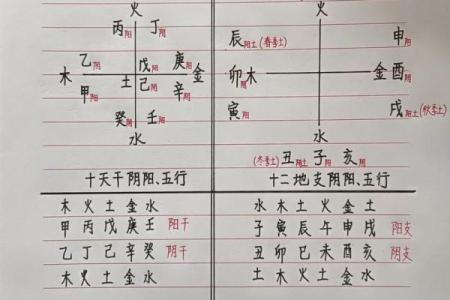 火
丙阳 丁阴
乙阴 戊阳 庚阳
木 土 金
甲阳 己阴 辛阴
癸阴 壬阳
水
十天干阴阳、五行
火
辰阳土(春季土) 申阳
卯阴木 金酉阴
寅阳 戌阳土(秋季土)
水
(冬季土)丑阴土 子阳 亥阴
十二地支阴阳、五行
木 火 土 金 水
甲 丙 戊 庚 壬 阳干
乙 丁 己 辛 癸 阴干
木 火 土 金 水
水 木 土 火 金 土
子 寅 辰 午 申 戌 阳支
丑 卯 巳 未 酉 亥 阴支
土 木 火 土 金 水